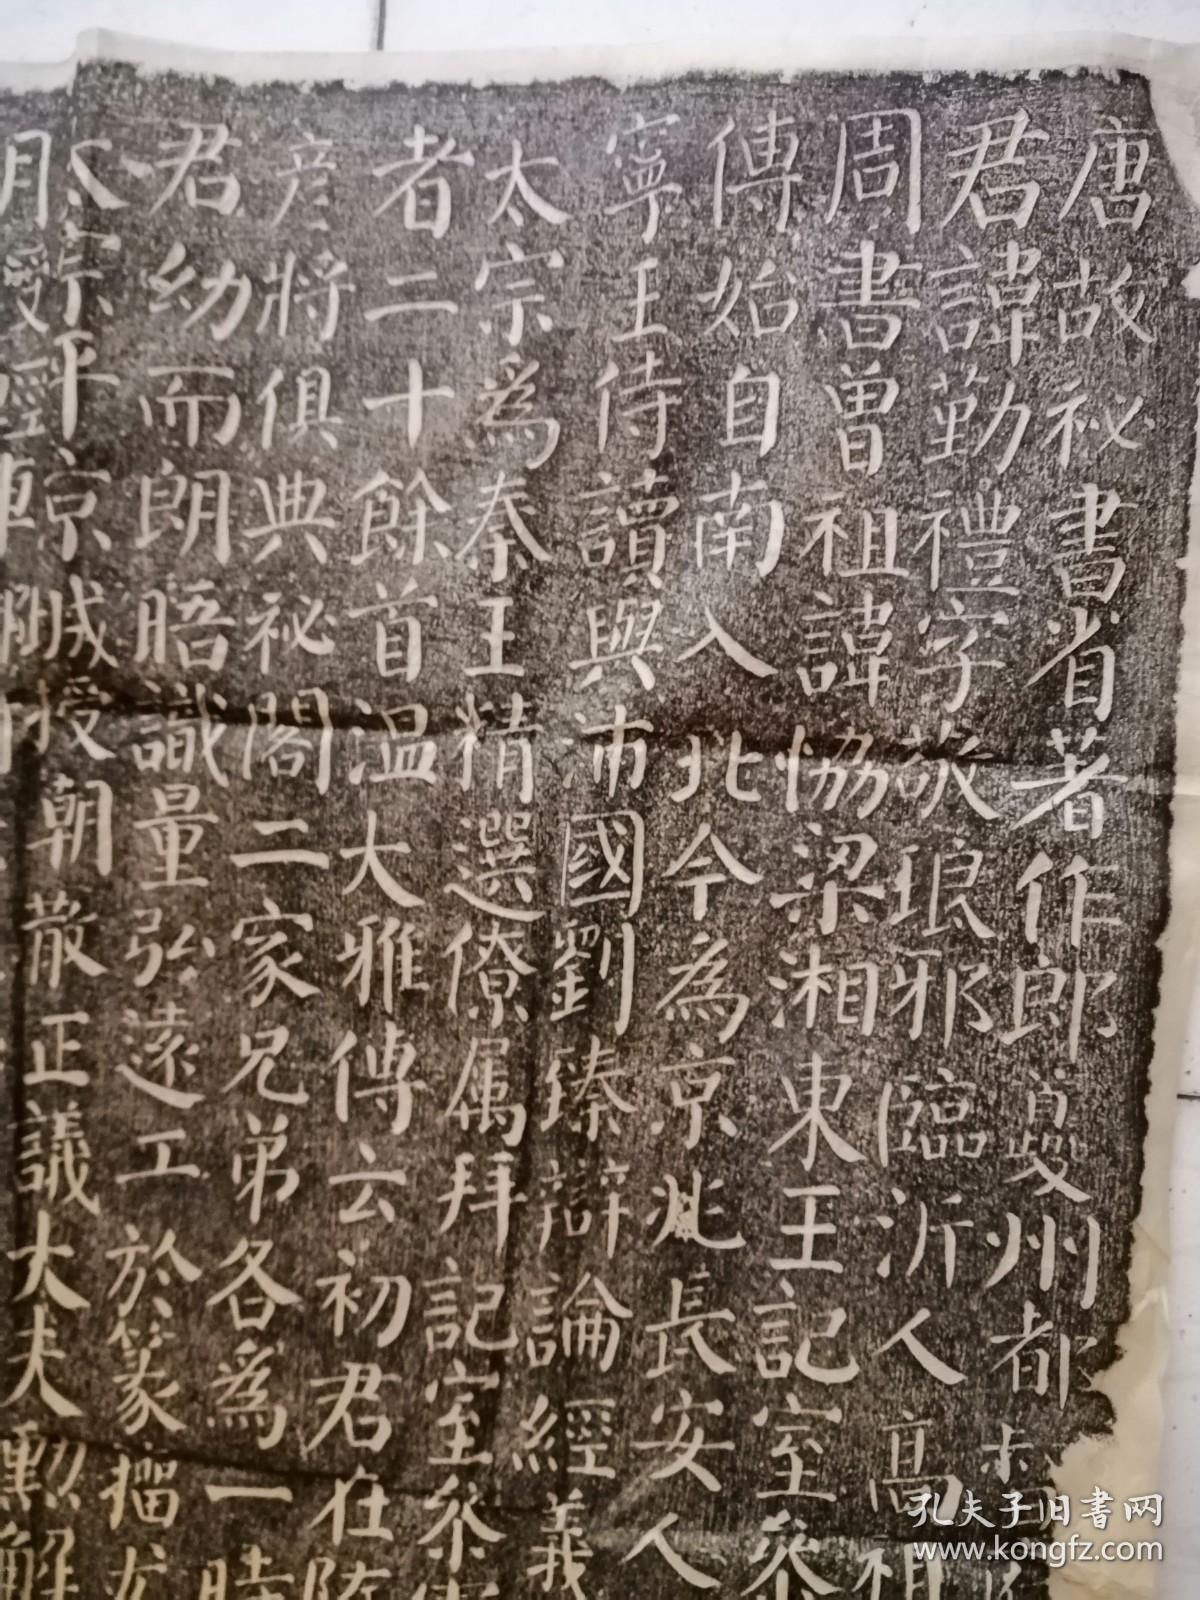 唐故祕書省著作郎夔州都
君諱勤禮字敬琅邪臨沂人高祖
周書曾祖諱協梁湘東王記室參
傳始自南入北今為京兆長安人
寧王侍讀與沛國劉臻辯論經義
太宗爲秦王精選僚属拜記室參軍
者二十餘首溫大雅傳云初君在隋
彥將俱典祕閣二家兄弟各爲一時
君幼而朗晤識量弘遠工於篆籀尤
太宗平京城授朝散正議大夫勳解
月
孔夫子旧書网
www.kongfz.com